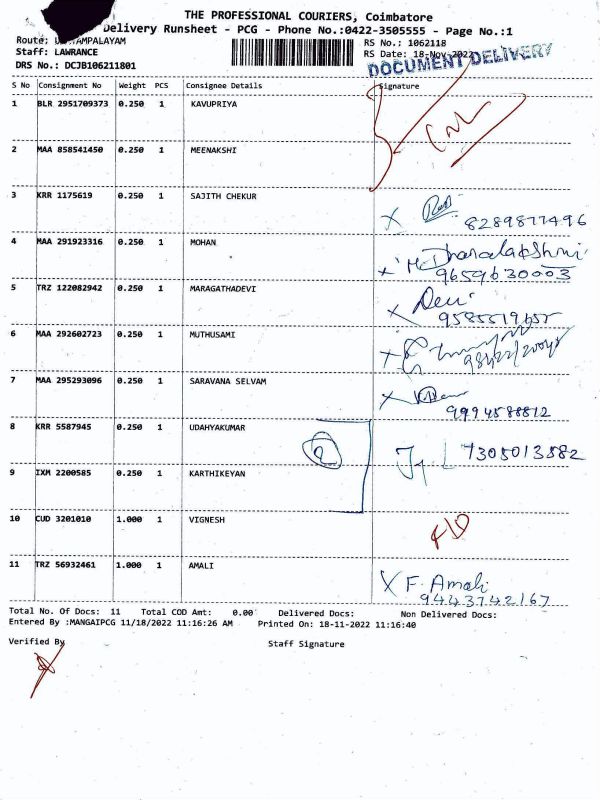 THE PROFESSIONAL COURIERS, Coimbatore
Delivery Runsheet - PCG - Phone No.:0422-3505555 - Page No.:1
Route: AMPALAYAM
RS No.: 1062118
Staff: LAWRANCE
RS Date: 18-Nov-2022
DRS No.: DCJB106211801
DOCUMENT DELIVERY
S No Consignment No Weight PCS Consignee Details Signature
1 BLR 2951709373 0.250 1 KAVUPRIYA
2 MAA 858541450 0.250 1 MEENAKSHI
3 KRR 1175619 0.250 1 SAJITH CHEKUR X 8289877496
4 MAA 291923316 0.250 1 MOHAN X M. Dhanalakshmi
9659630003
5 TRZ 122082942 0.250 1 MARAGATHADEVI X Devi
9585519655
6 MAA 292602723 0.250 1 MUTHUSAMI X
7 MAA 295293096 0.250 1 SARAVANA SELVAM X
9994588812
8 KRR 5587945 0.250 1 UDAHYAKUMAR 2 7305013582
9 IXM 2200585 0.250 1 KARTHIKEYAN
10 CUD 3201010 1.000 1 VIGNESH
11 TRZ 56932461 1.000 1 AMALI X F. Amali
9443742167
Total No. Of Docs: 11 Total COD Amt: 0.00 Delivered Docs: Non Delivered Docs:
Entered By :MANGAIPCG 11/18/2022 11:16:26 AM Printed On: 18-11-2022 11:16:40
Verified By Staff Signature